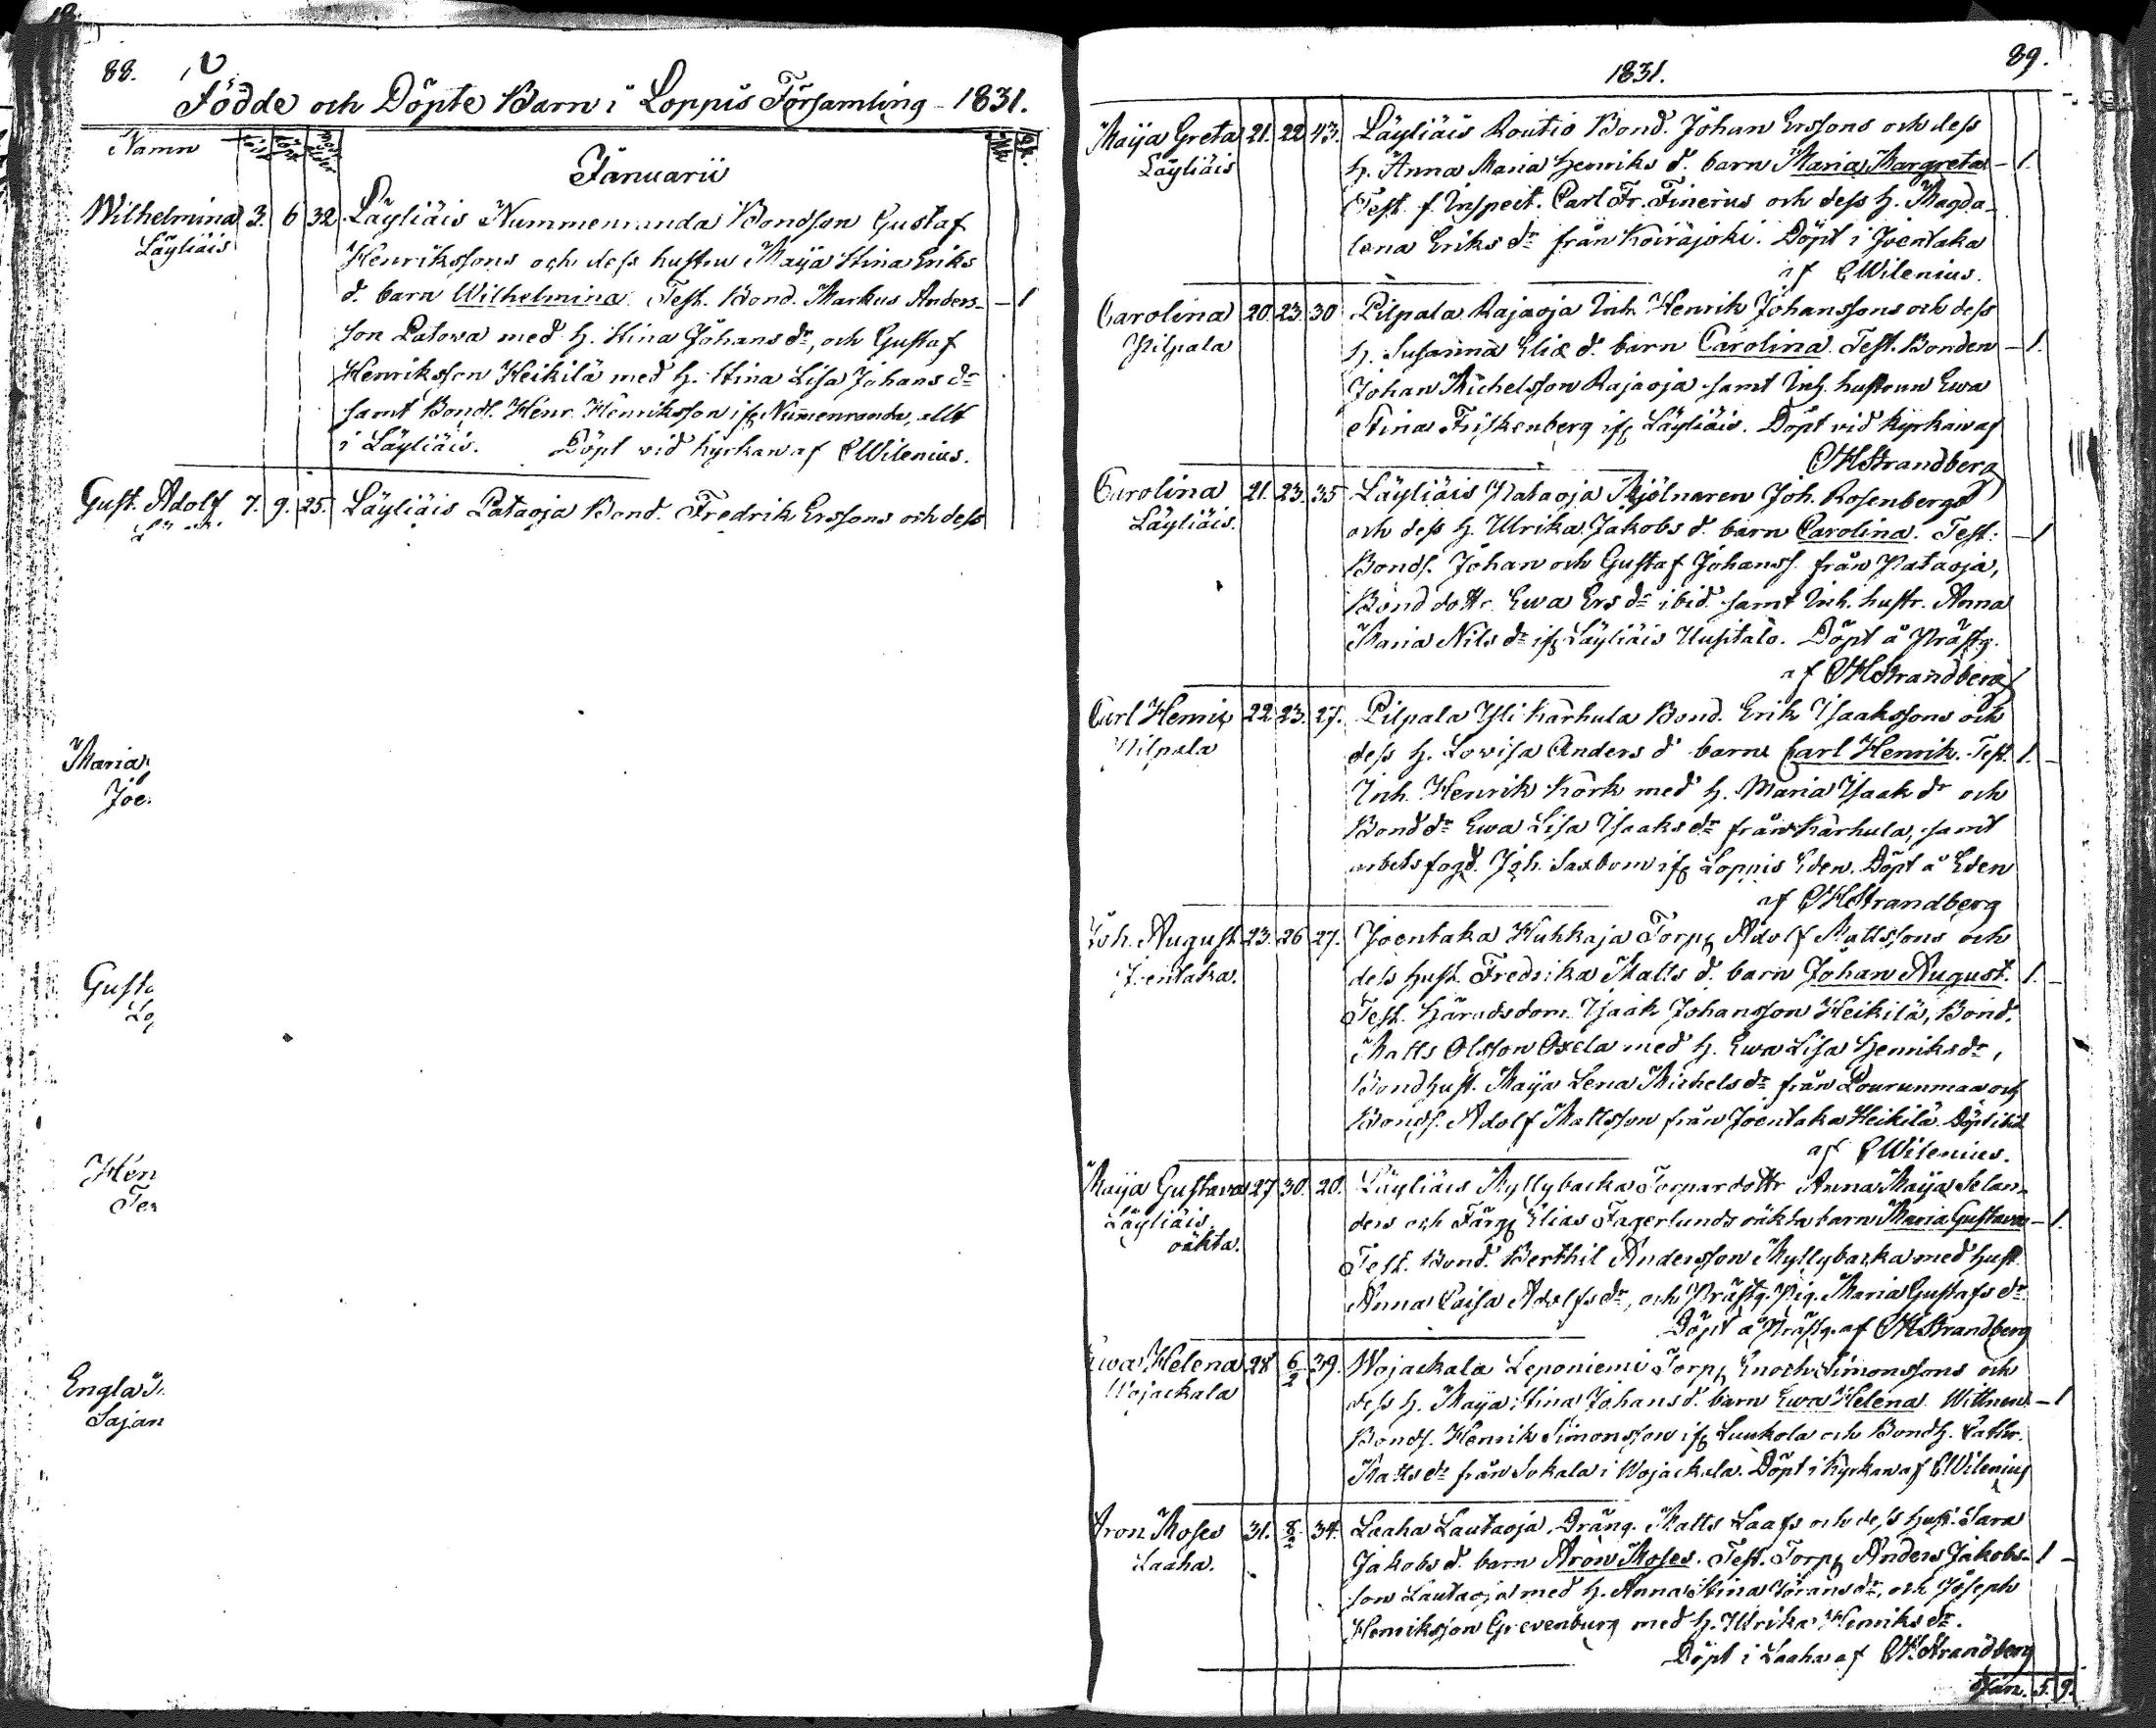 88.
Födde och Döpte Barn i Loppis Församling 1831.
Namn född döpt
Januarii
Wilhelmina 3. 6 32 Läyliäis Nummenranda Bondson Gustaf
Läyliäis
Henrikssons och dess hustru Maija Stina Eriks
d. barn Wilhelmina. Test. Bond. Markus Anders- – 1
son Patova med h. Stina Johans dr, och Gustaf
Henriksson Heikilä med h. Stina Lisa Johans dr
samt Bonds. Henr. Henriksson ifr. Nummenranda, allt
i Läyliäis. Döpt vid Kyrkan af C Wilenius.
Gust. Adolf 7. 9. 25. Läyliäis Pataoja Bond. Fredrik Erssons och dess
Maria
Joe
Gusta
Lo
Hen
Ter
Engla
Sajan
1831. 89.
Maija Greta 21. 22 43. Läyliäis Routio Bond. Johan Erssons och dess
Läyliäis
h. Anna Maria Henriks d. barn Maria Margreta – 1.
Test. f. Inspect. Carl Fr. Finerus och dess h. Magda-
lena Eriks dr från Koiräjoki. Döpt i Joentaka
af C Wilenius.
Carolina 20. 23. 30 Pilpala Rajaoja Inh. Henrik Johanssons och dess
Pilpala
h. Susanna Eliæ d. barn Carolina. Test. Bonden – 1.
Johan Michelsson Rajaoja samt Inh. hustrun Ewa
Stina Friskenberg ifr. Läyliäis. Döpt vid Kyrkan af
CHStrandberg
Carolina 21. 23. 35 Läyliäis Pataoja Mjölnaren Joh. Rosenbergs
Läyliäis.
och dess h. Ulrika Jakobs d. barn Carolina. Test. – 1
Bonds. Johan och Gustaf Johanss. från Pataoja,
Bond dottr. Ewa Ers dr ibid. samt Inh. hustr. Anna
Maria Nils dr ifr. Läyliäis Uusitalo. Döpt å Prästg.
af CHStrandberg
Carl Henric 22. 23. 27. Pilpala Yli Karhula Bond. Erik Isaakssons och
Pilpala
dess h. Lovisa Anders d. barn Carl Henrik. Test. 1. –
Inh. Henrik Körk med h. Maria Isaak dr och
Bond dr Ewa Lisa Isaaks dr från Karhula, samt
arbetsfogd. Joh. Saxbom ifr. Loppis Eden. Döpt å Eden
af CHStrandberg
Joh. August 23. 26 27. Joentaka Kuhkaja Torp. Adolf Mattssons och
Joentaka.
dess hust. Fredrika Matts d. barn Johan August. 1. –
Test. Häradsdom. Isaak Johansson Heikilä, Bond.
Matts Olsson Oxela med h. Ewa Lisa Henriks dr,
Bondhust. Maija Lena Michels dr från Pourunmaa och
Bonds. Adolf Mattsson från Joentaka Heikilä. Döpt ibid.
af C Wilenius.
Maija Gustava 27 30. 20. Läyliäis Myllybacka Torpardottr Anna Maija Selan-
Läyliäis.
oäkta.
ders och Färg. Elias Fagerlunds oäkta barn Maria Gustava – 1.
Test. Bond. Berthil Andersson Myllybacka med hust.
Anna Caisa Adolfs dr, och Prästg. Pig. Maria Gustafs dr
Döpt å Prästg. af CHStrandberg
Ewa Helena 28 6/2 39. Wojackala Leponiemi Torp. Enoch Simonssons och
Wojackala
dess h. Maija Stina Johans d. barn Ewa Helena. Wittnen – 1
Bonds. Henrik Simonsson ifr. Luukola och Bondh. Cathr.
Matts dr från Sokala i Wojackala. Döpt i Kyrkan af C Wilenius
Aron Moses 31. 8/2 34. Laaha Lautaoja Dräng. Matts Laafs och dess hust. Sara
Laaha.
Jakobs d. barn Aron Moses. Test. Torp. Anders Jakobs- 1 –
son Lautaoja med h. Anna Stina Jörans dr, och Joseph
Henriksson Grevenburg med h. Ulrika Henriks dr.
Döpt i Laaha af CHStrandberg
Jan. 5. 9.